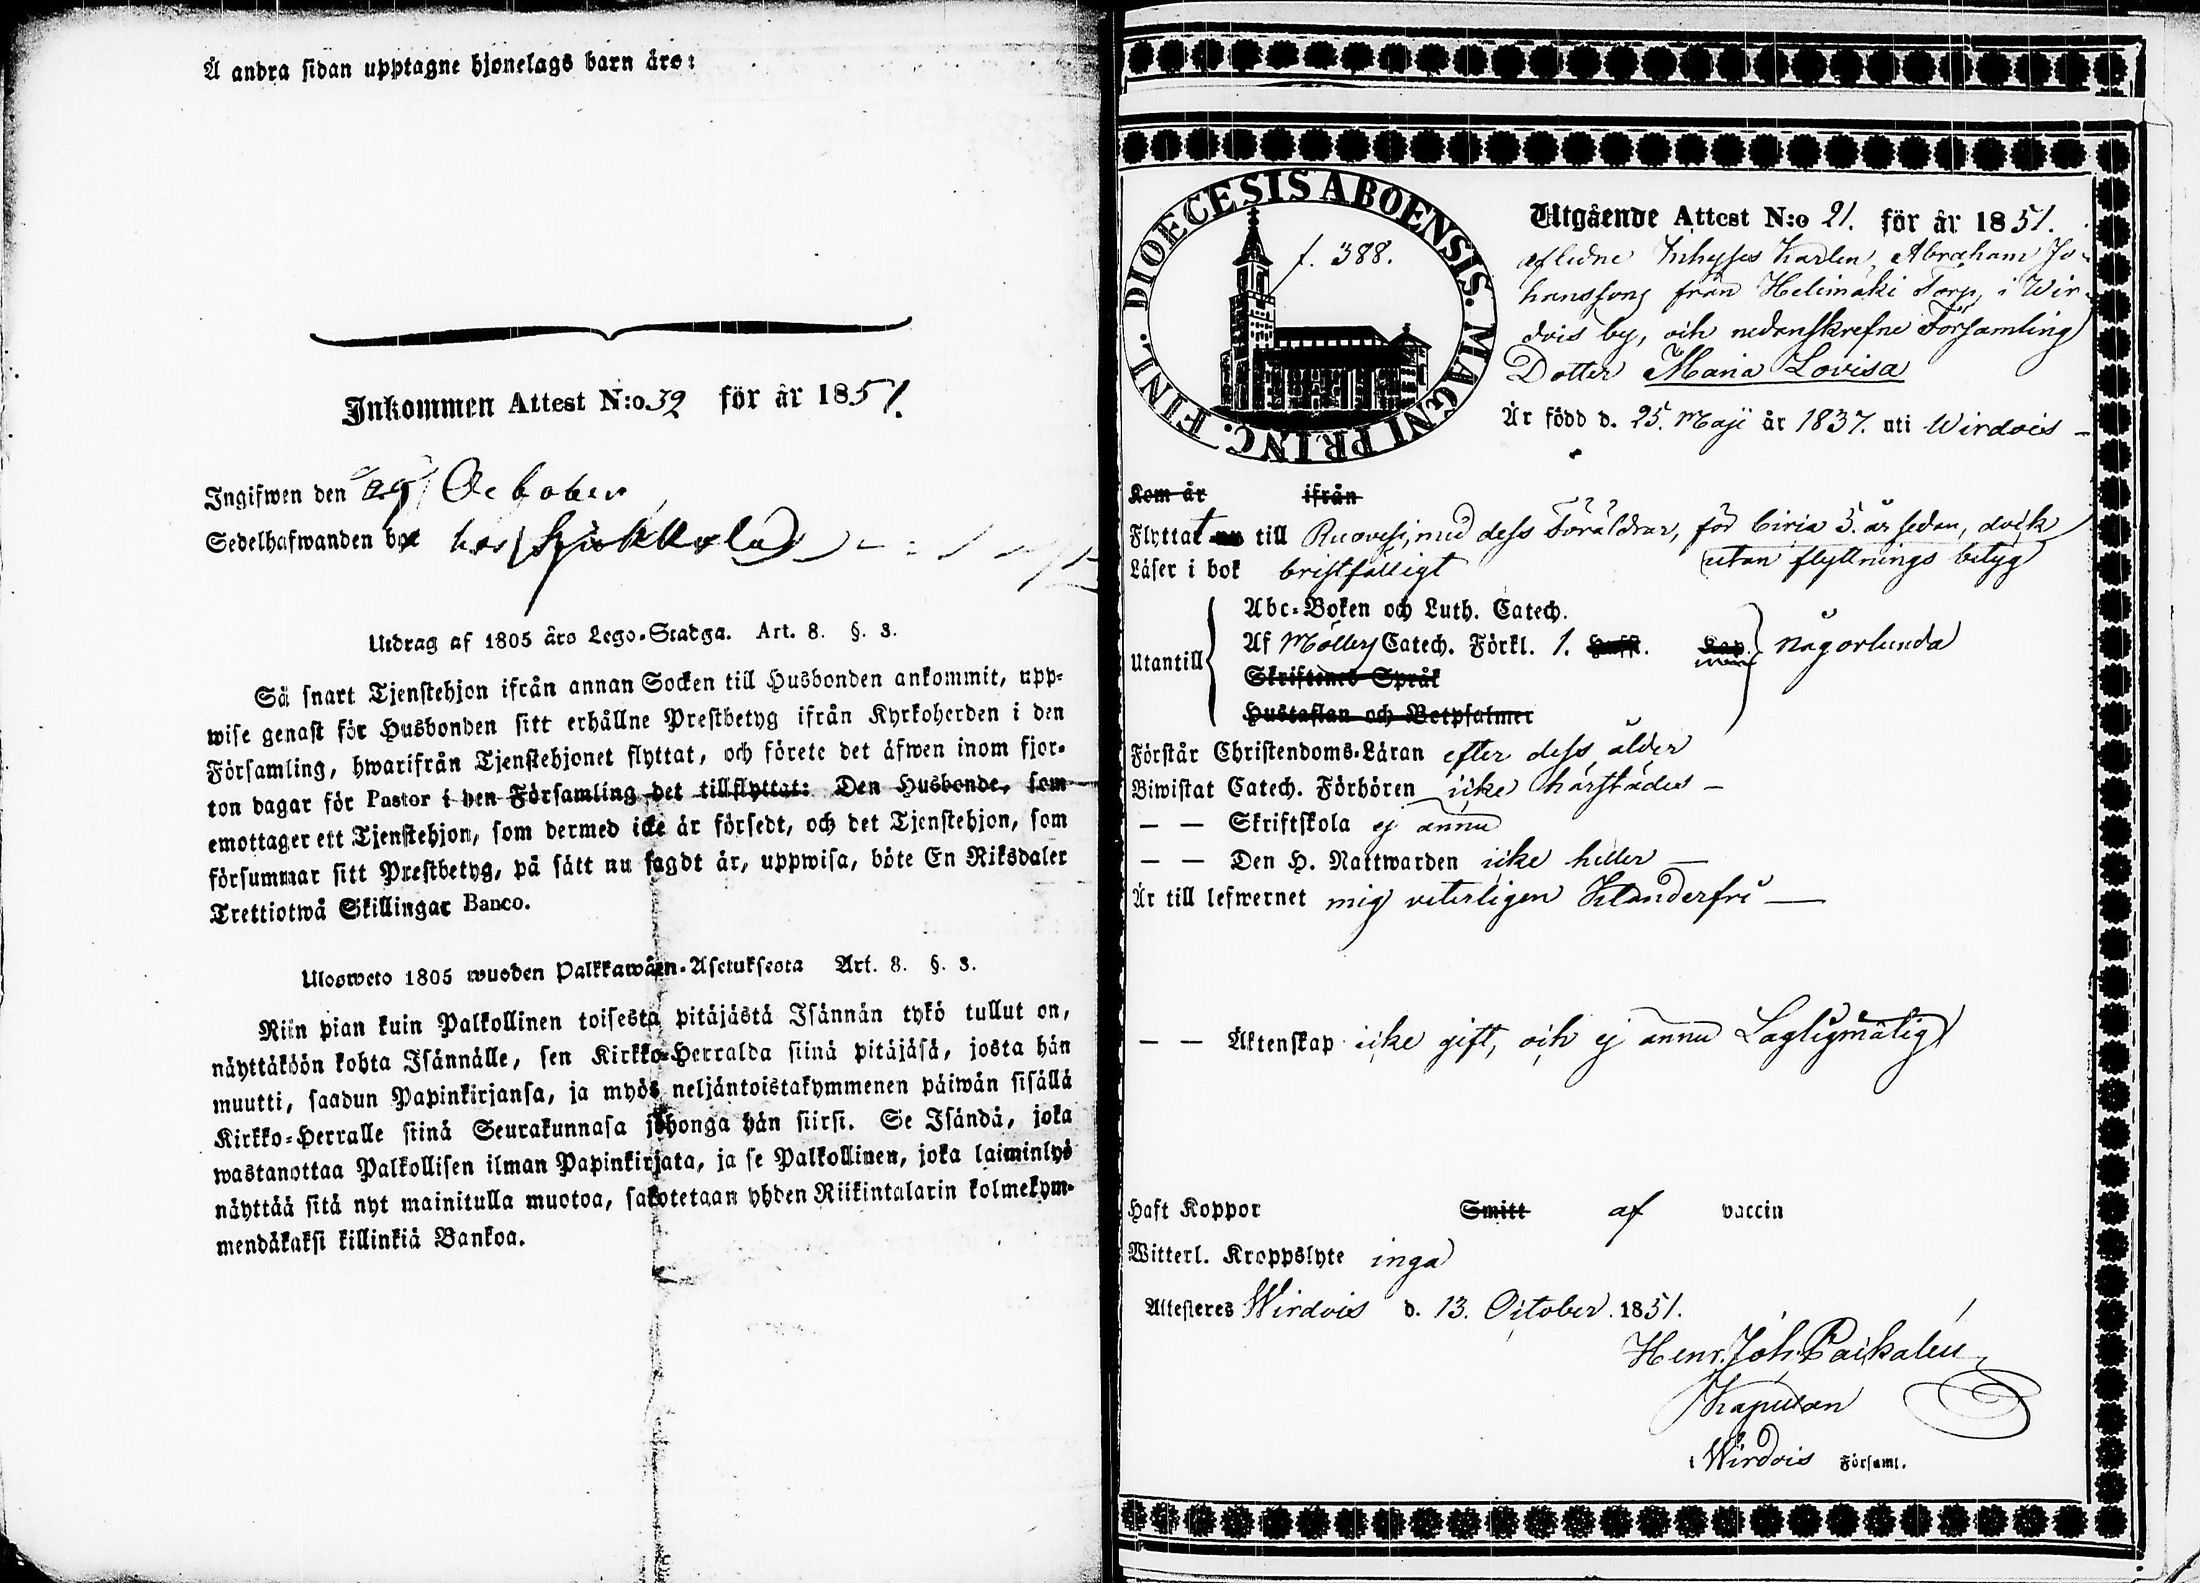 Å andra sidan upptagne hjonelags barn äro:
Inkommen Attest N:o 39 för år 1851.
Ingifwen den 29 October
Sedelhafwanden bor hos
Utdrag af 1805 års Lego-Stadga. Art. 8. §. 3.
Så snart Tjenstehjon ifrån annan Socken till Husbonden ankommit, upp-
wise genast för Husbonden sitt erhållne Prestbetyg ifrån Kyrkoherden i den
Församling, hwarifrån Tjenstehjonet flyttat, och förete det äfwen inom fjor-
ton dagar för Pastor i den Församling det tillflyttat: Den Husbonde, som
emottager ett Tjenstehjon, som dermed icke är försedt, och det Tjenstehjon, som
försummar sitt Prestbetyg, på sätt nu sagdt är, uppwisa, böte En Riksdaler
Trettiotwå Skillingar Banco.
Ulosweto 1805 wuoden Palkkawäen-Asetuksesta Art. 8. §. 3.
Niin pian kuin Palkollinen toisesta pitäjästä Isännän tykö tullut on,
näyttäköön kohta Isännälle, sen Kirkko-Herralda siinä pitäjäsä, josta hän
muutti, saadun Papinkirjansa, ja myös neljäntoistakymmenen päiwän sisällä
Kirkko-Herralle siinä Seurakunnasa johonga hän siirsi. Se Isändä, joka
wastanottaa Palkollisen ilman Papinkirjata, ja se Palkollinen, joka laiminlyö
näyttää sitä nyt mainitulla muotoa, sakotetaan yhden Riikintalarin kolmekym-
mendäkaksi killinkiä Bankoa.
DIOECESIS ABOENSIS. MAGNI PRINC. FINL.
f. 388.
Utgående Attest N:o 21. för år 1851.
aflidne Inhyses Karlen, Abraham Jo-
hanssons från Helimäki Torp, i Wir-
dois by, och nedanskrefne Församling
Dotter Maria Lovisa
Är född d. 25. Maji år 1837. uti Wirdois
Kom år ifrån
Flyttat nu till Ruovesi, med dess Föräldrar, för circa 5. år sedan, dock
utan flyttnings betyg
Läser i bok bristfälligt
Abc-Boken och Luth. Catech.
Utantill Af Möllers Catech. Förkl. 1. Hufst. Kap. någorlunda
Skriftenes Språk
Hustaflan och Botpsalmer
Förstår Christendoms-Läran efter dess ålder
Biwistat Catech. Förhören icke härstädes
— — Skriftskola ej ännu
— — Den H. Nattwarden icke heller
Är till lefwernet mig veterligen Klanderfri
— — Äktenskap icke gift, och ej ännu Lagligmätig
Haft Koppor Smitt af vaccin
Witterl. Kroppslyte inga
Attesteres Wirdois d. 13. October 1851.
Henr. Joh. Paikalén
Kapellan
i Wirdois Församl.